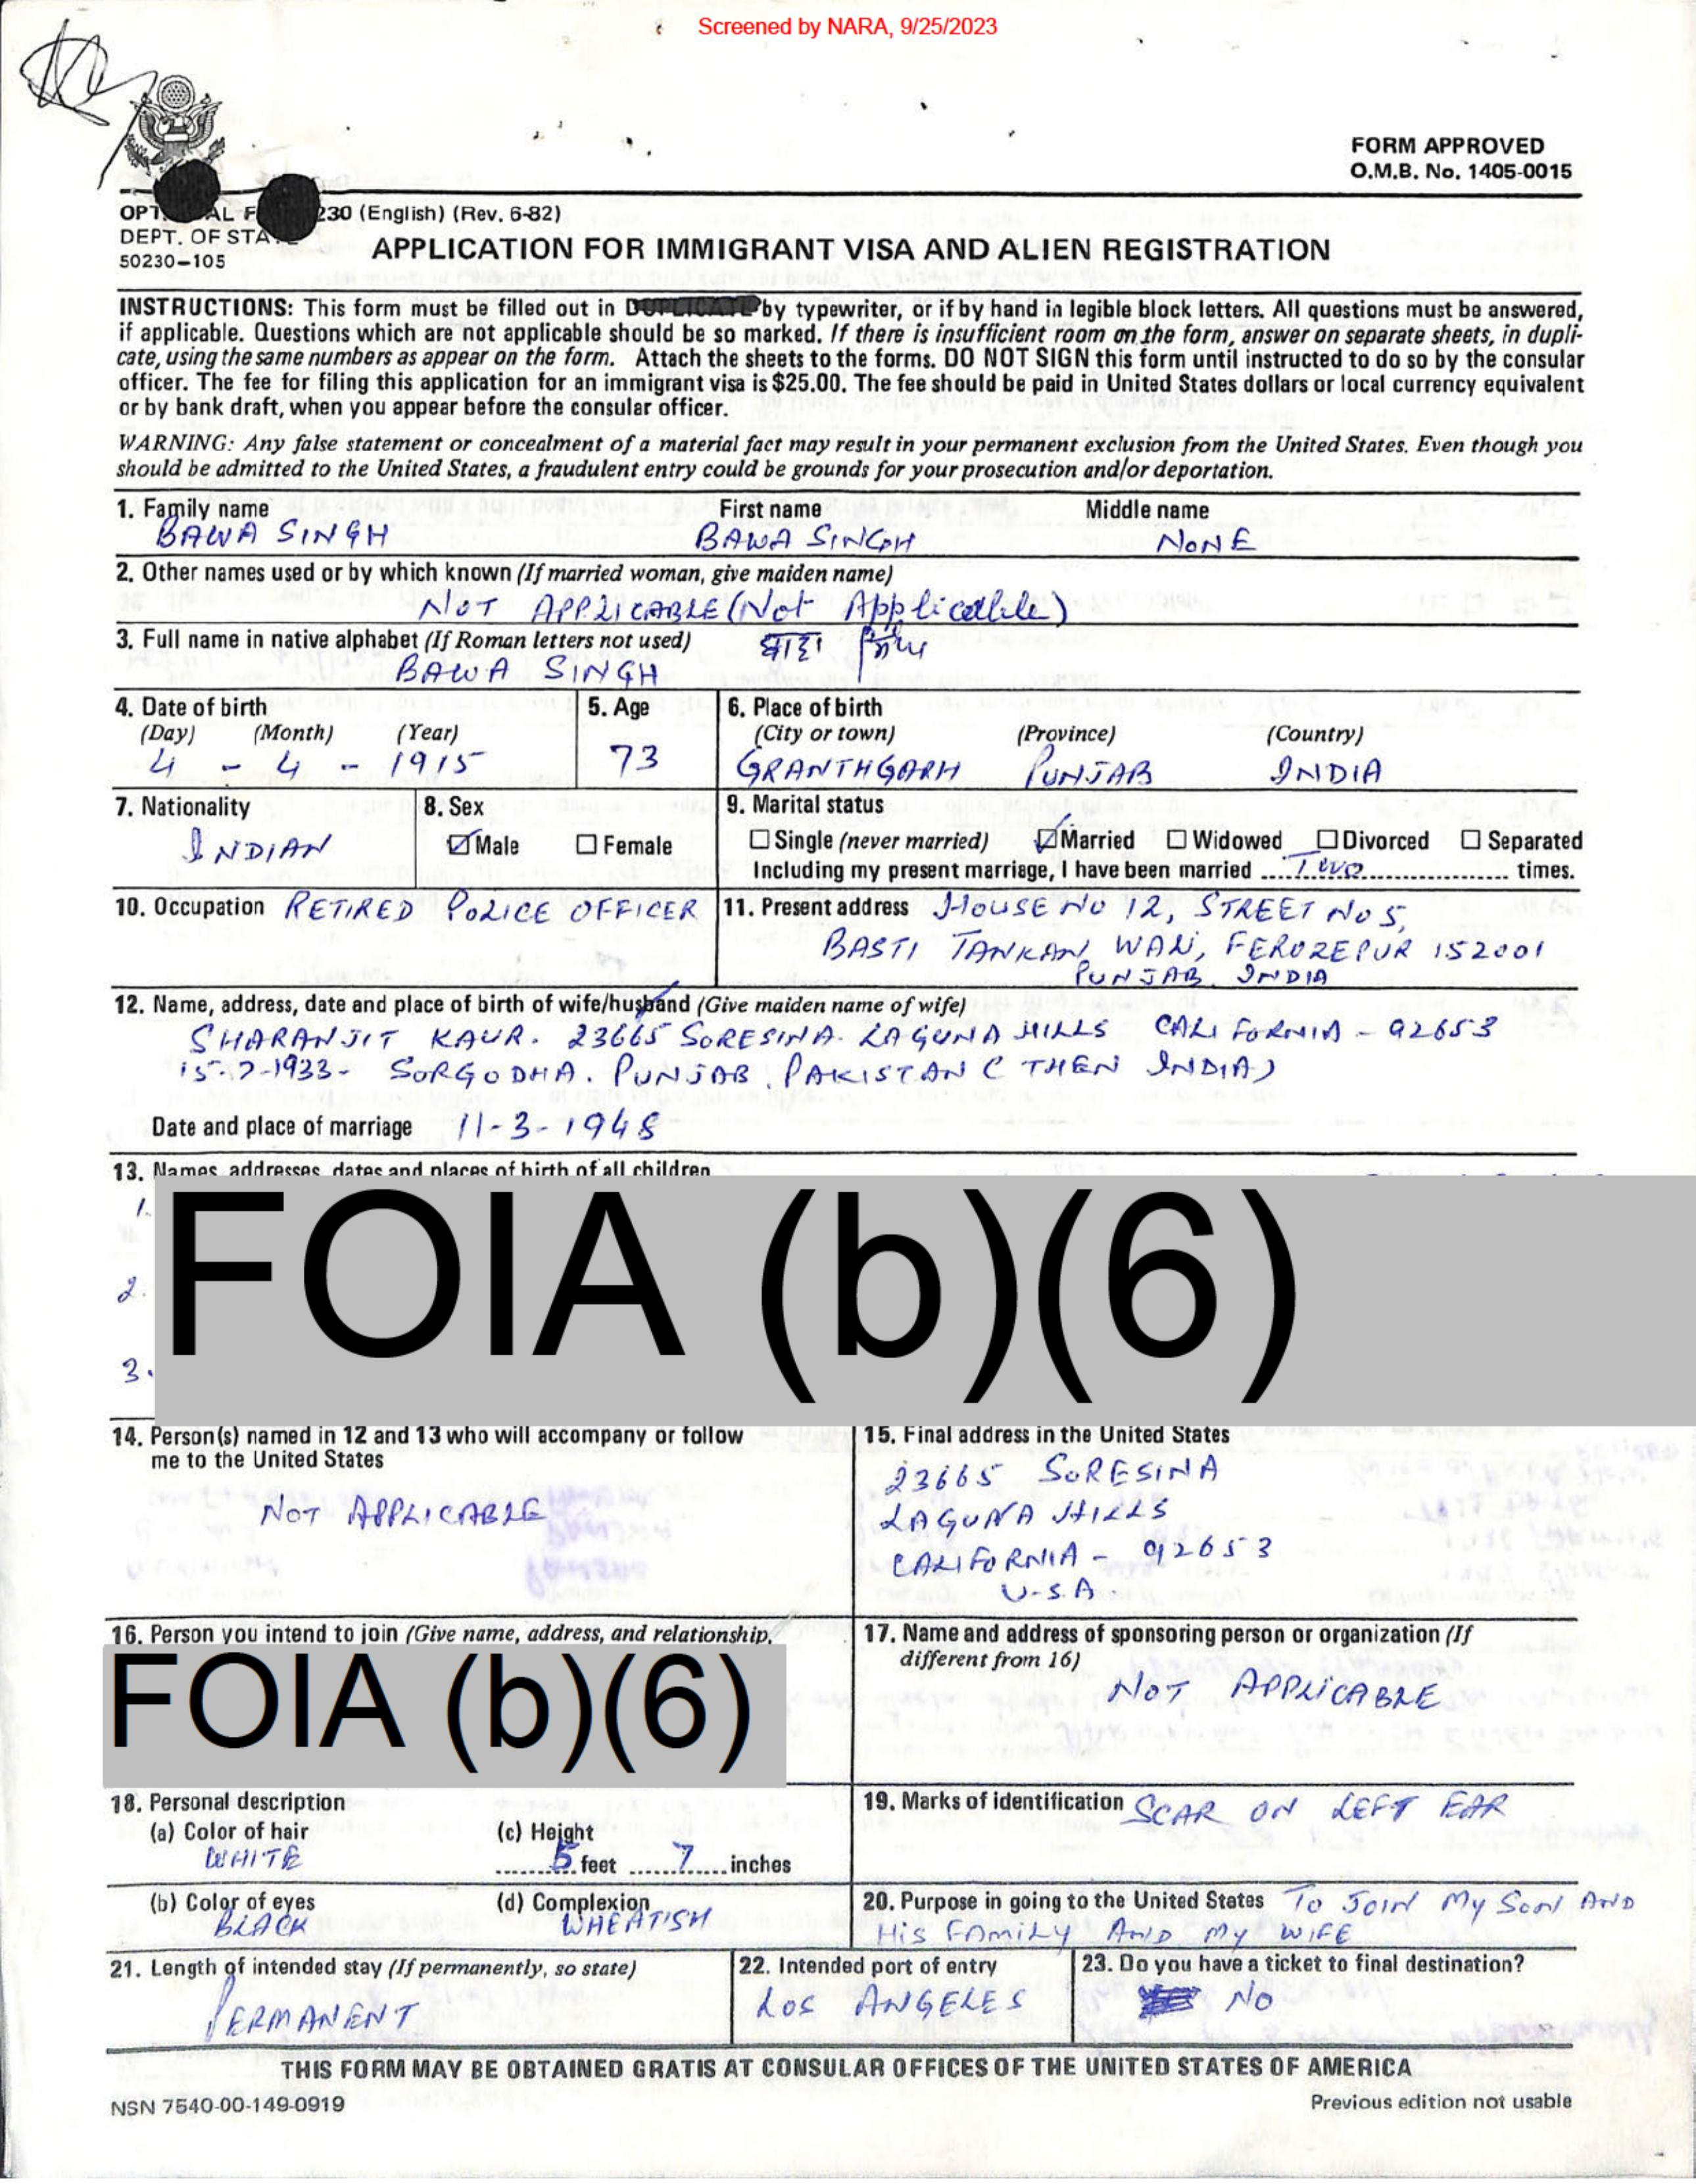 Screened by NARA, 9/25/2023
FORM APPROVED
O.M.B. No. 1405-0015
230 (English) (Rev. 6-82)
DEPT. OF STA
50230-105
APPLICATION FOR IMMIGRANT VISA AND ALIEN REGISTRATION
INSTRUCTIONS: This form must be filled out in by typewriter, or if by hand in legible block letters. All questions must be answered,
if applicable. Questions which are not applicable should be so marked. If there is insufficient room on the form, answer on separate sheets, in dupli-
cate, using the same numbers as appear on the form. Attach the sheets to the forms. DO NOT SIGN this form until instructed to do so by the consular
officer. The fee for filing this application for an immigrant visa is $25.00. The fee should be paid in United States dollars or local currency equivalent
or by bank draft, when you appear before the consular officer.
WARNING: Any false statement or concealment of a material fact may result in your permanent exclusion from the United States. Even though you
should be admitted to the United States, a fraudulent entry could be grounds for your prosecution and/or deportation.
1. Family name First name Middle name
BAWA SINGH BAWA SINGH NONE
2. Other names used or by which known (If married woman, give maiden name)
NOT APPLICABLE (Not Applicable)
3. Full name in native alphabet (If Roman letters not used)
BAWA SINGH
4. Date of birth 5. Age 6. Place of birth
(Day) (Month) (Year) (City or town) (Province) (Country)
4 - 4 - 1915 73 GRANTHGARH PUNJAB INDIA
7. Nationality 8. Sex 9. Marital status
INDIAN Male Female Single (never married) Married Widowed Divorced Separated
Including my present marriage, I have been married Two times.
10. Occupation RETIRED POLICE OFFICER 11. Present address HOUSE NO 12, STREET NO 5,
BASTI TANKAN WALI, FEROZEPUR 152001
PUNJAB. INDIA
12. Name, address, date and place of birth of wife/husband (Give maiden name of wife)
SHARANJIT KAUR. 23665 SORESINA. LAGUNA HILLS CALIFORNIA - 92653
15-7-1933- SORGODHA. PUNJAB. PAKISTAN (THEN INDIA)
Date and place of marriage 11-3-1948
13. Names, addresses, dates and places of birth of all children
1.
2.
3.
FOIA (b)(6)
14. Person(s) named in 12 and 13 who will accompany or follow
me to the United States
NOT APPLICABLE
15. Final address in the United States
23665 SORESINA
LAGUNA HILLS
CALIFORNIA - 92653
U.S.A.
16. Person you intend to join (Give name, address, and relationship,
FOIA (b)(6)
17. Name and address of sponsoring person or organization (If
different from 16)
NOT APPLICABLE
18. Personal description
(a) Color of hair (c) Height
WHITE 5 feet 7 inches
(b) Color of eyes (d) Complexion
BLACK WHEATISH
19. Marks of identification SCAR ON LEFT EAR
20. Purpose in going to the United States To JOIN MY SON AND
HIS FAMILY AND MY WIFE
21. Length of intended stay (If permanently, so state)
PERMANENT
22. Intended port of entry
LOS ANGELES
23. Do you have a ticket to final destination?
NO
THIS FORM MAY BE OBTAINED GRATIS AT CONSULAR OFFICES OF THE UNITED STATES OF AMERICA
NSN 7540-00-149-0919 Previous edition not usable